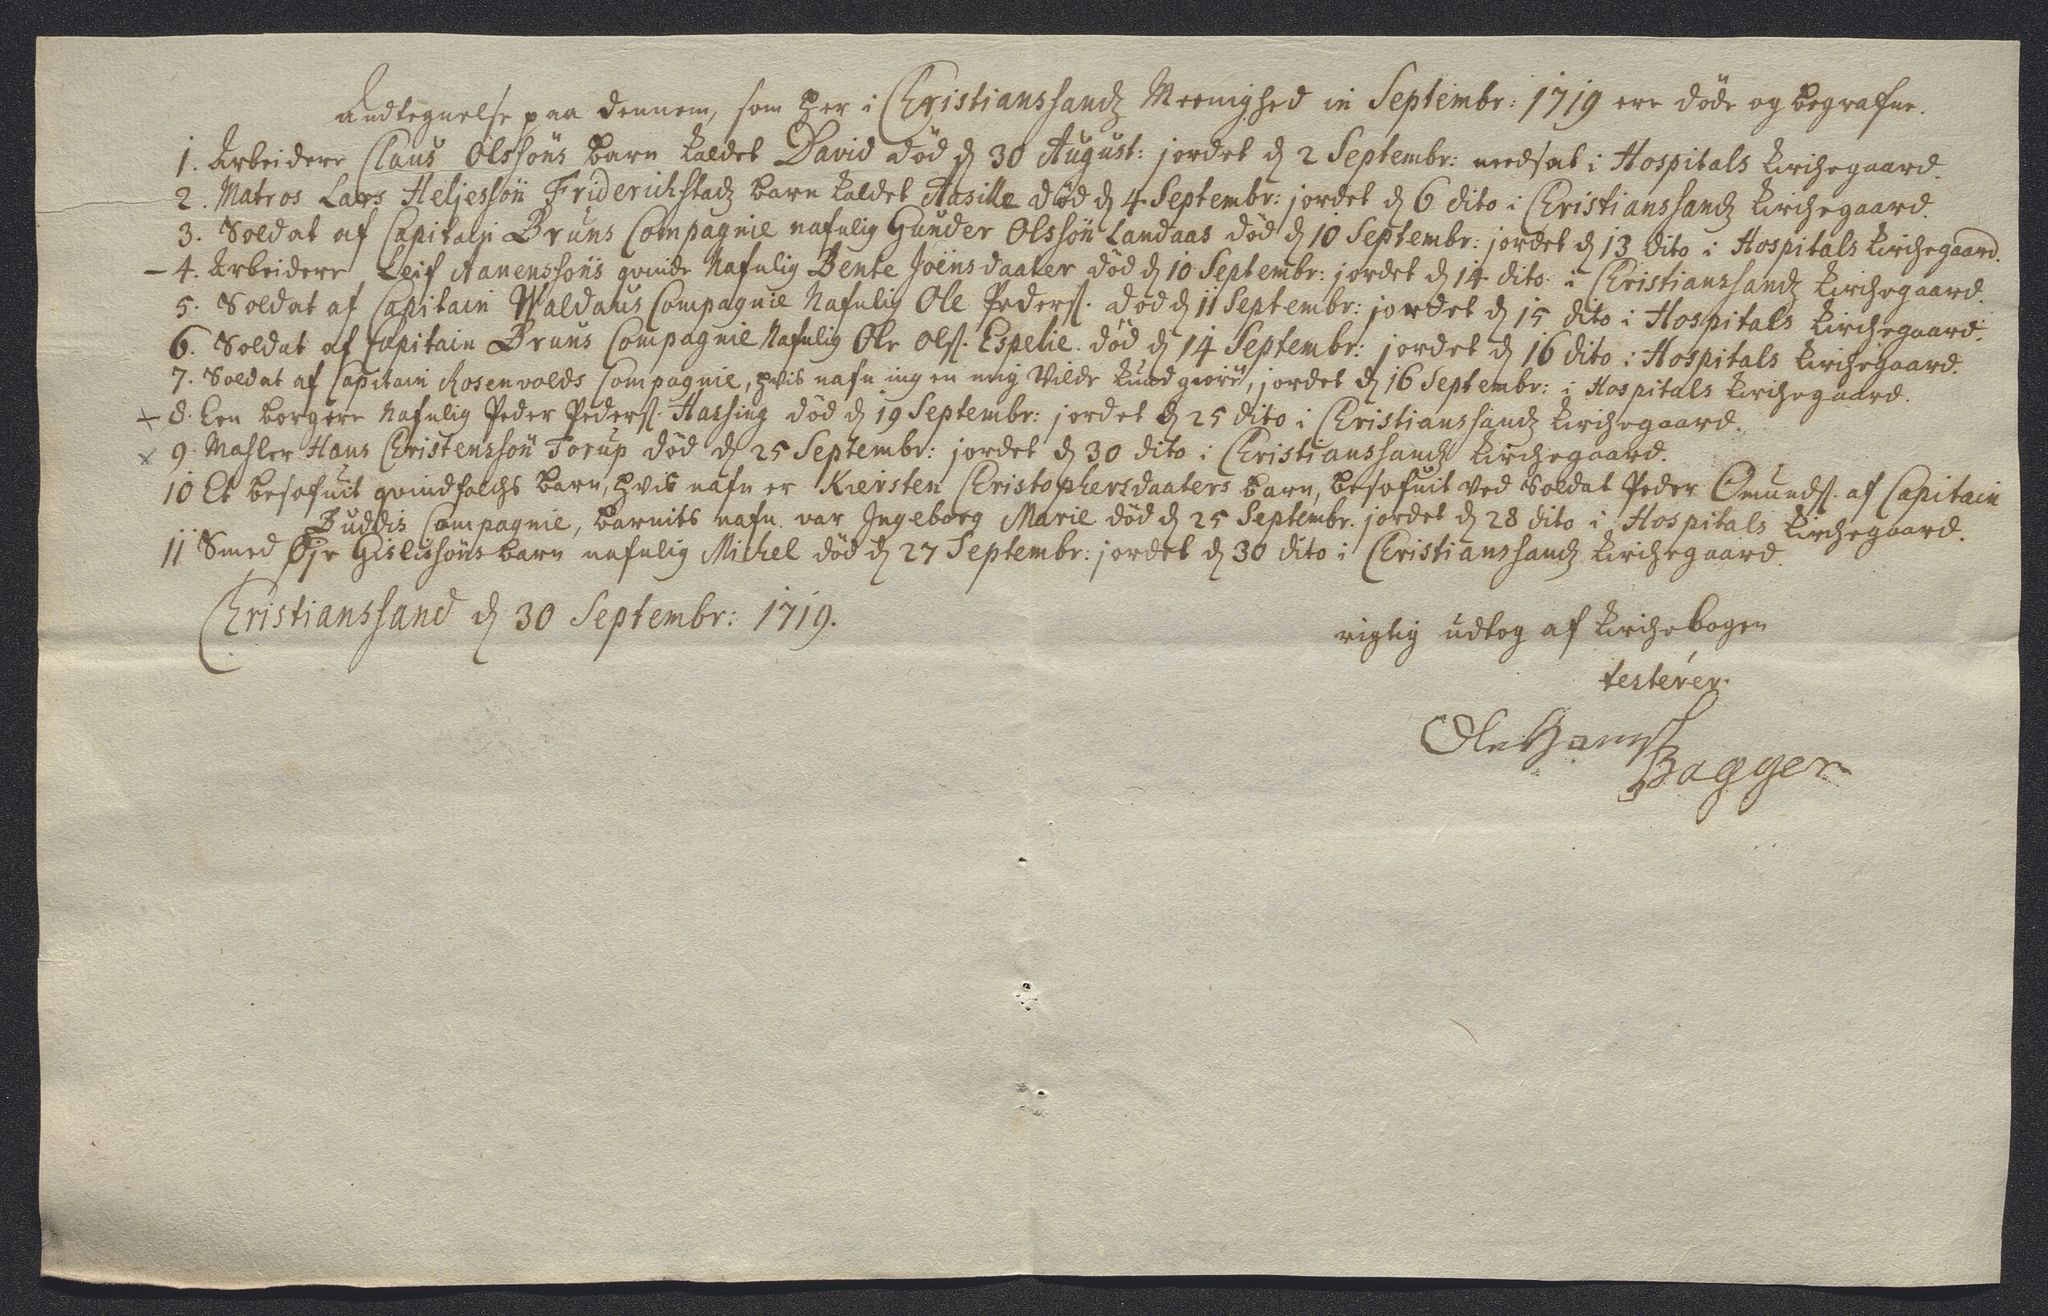 Andtegnelse paa dennem, som her i Christianssandz Meenighed in Septembr: 1719 ere døde og begrafne.
1. Arbeidere Claus Olssøns barn kaldet David død d 30 August: jordet d 2 Septembr: needsat i Hospitals kirchegaard.
2. Matros Lars Heljessøn Friderichstadz barn kaldet Aasille død d 4 Septembr: jordet d 6 dito i Christianssandz kirchegaard.
3. Soldat af Capitain Bruns Compagnie nafnlig Gunder Olssøn Landaas død d 10 Septembr: jordet d 13 dito i Hospitals kirchegaard.
– 4. Arbeidere Leif Aanenssøns qvinde Nafnlig Bente Joensdaater død d 10 Septembr: jordet d 14 dito i Christianssandz kirchegaard.
5. Soldat af Capitain Waldaus Compagnie Nafnlig Ole Peders. død d 11 Septembr: jordet d 15 dito i Hospitals kirchegaard.
6. Soldat af Capitain Bruns Compagnie Nafnlig Ole Ols. Espelie død d 14 Septembr: jordet d 16 dito i Hospitals kirchegaard.
7. Soldat af Capitain Rosenvolds Compagnie, hvis nafn ingen mig vilde kundgiøre, jordet d 16 Septembr: i Hospitals kirchegaard.
+ 8. Een borgere Nafnlig Peder Peders. Hassing død d 19 Septembr: jordet d 25 dito i Christianssandz kirchegaard.
x 9. Mahler Hans Christenssøn Torup død d 25 Septembr: jordet d 30 dito i Christianssandz kirchegaard.
10 Et besofuit qvindfolchs barn, hvis nafn er Kiersten Christophersdaaters barn, besofuit ved Soldat Peder Omunds. af Capitain
Buddis Compagnie, barnits nafn var Ingeborg Marie død d 25 Septembr. jordet d 28 dito i Hospitals kirchegaard.
11 Smed Gislissøns barn nafnlig Michel død d 27 Septembr: jordet d 30 dito i Christianssandz kirchegaard.
Christianssand d 30 Septembr: 1719.
rigtig udtog af kirchebogen
testerer.
Ole Hans.
Bagger